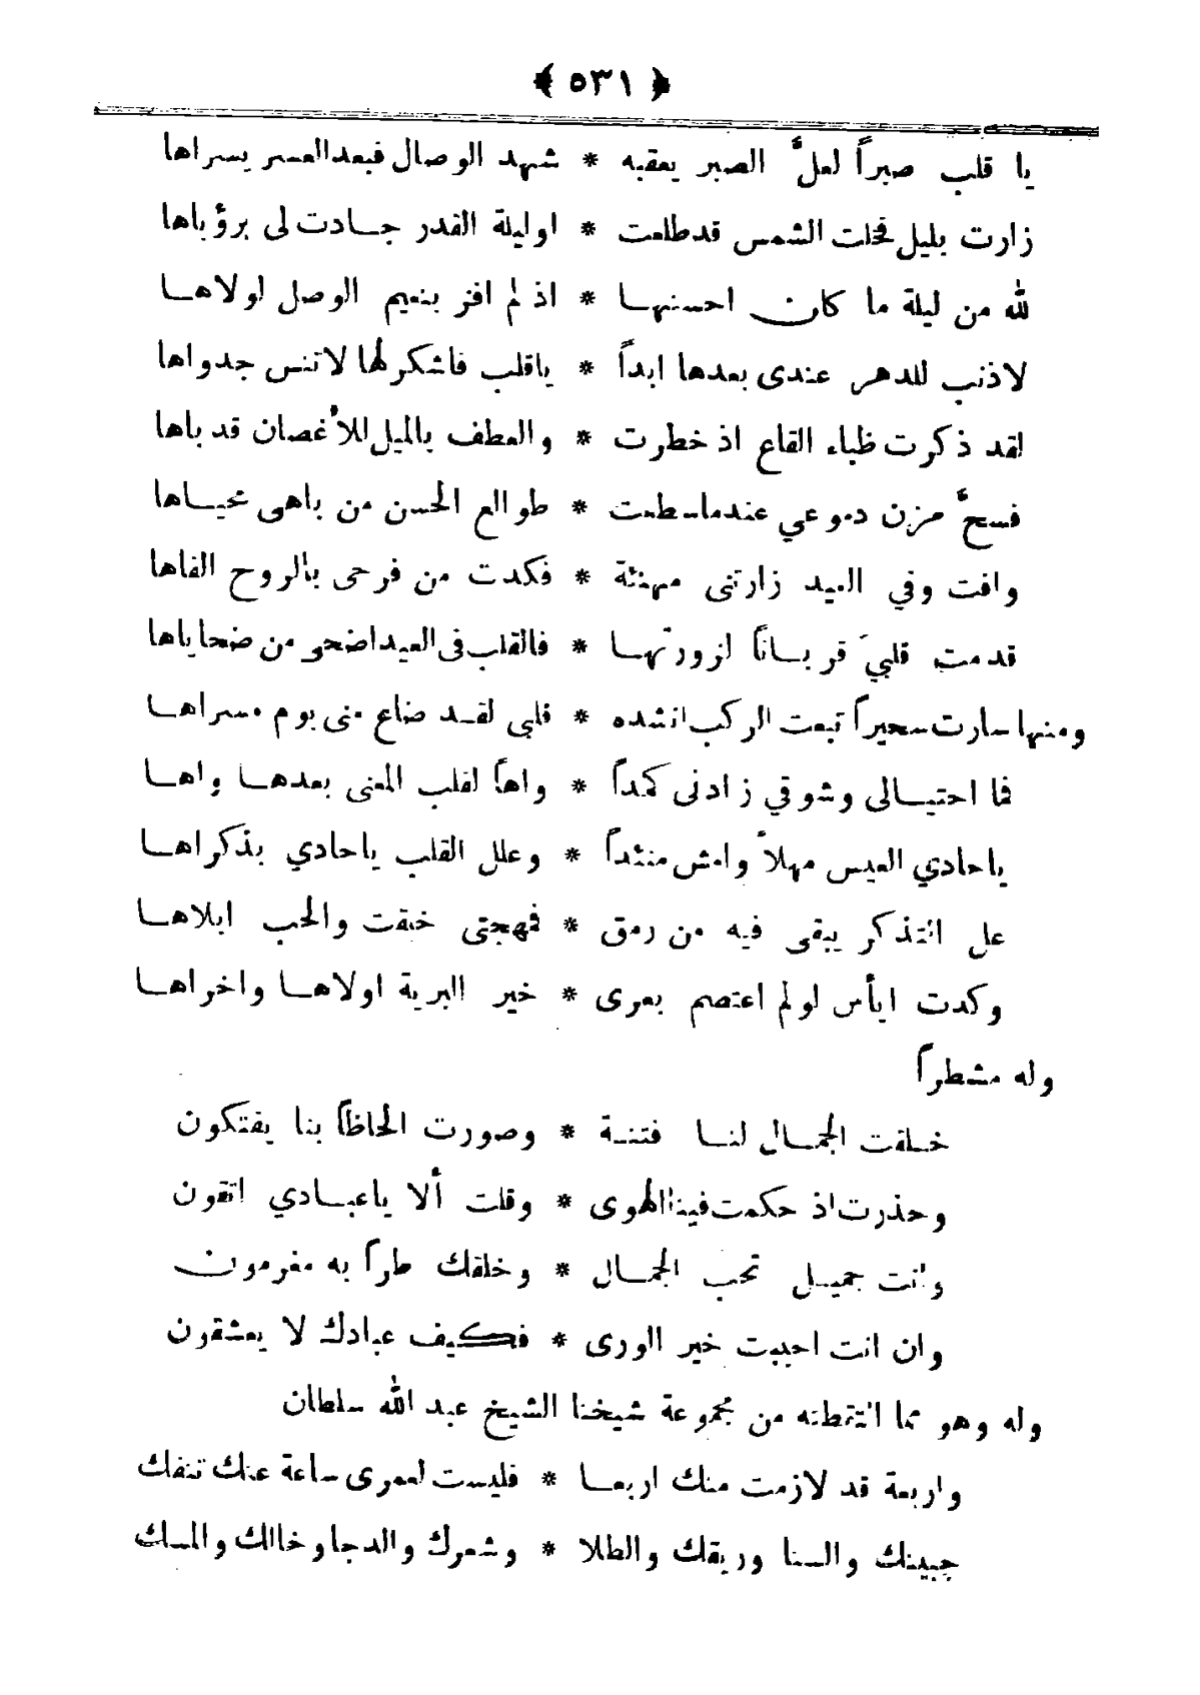 ﴿ ٥٣١ ﴾
يا قلب صبراً لعلَّ الصبر يعقبه * شهد الوصال فبعد العسر يسراها
زارت بليل فخلت الشمس قد طلعت * او ليلة القدر جادت لى برؤياها
لله من ليلة ما كان احسنها * اذ لم افز بنعيم الوصل لولاها
لاذنب للدهر عندى بعدها ابداً * ياقلب فاشكر لها لاتنس جدواها
لقد ذكرت ظباء القاع اذ خطرت * والعطف بالميل للأغصان قد باها
فسحَّ مزن دموعي عندما سطعت * طوالع الحسن من باهى محياها
وافت وفي العيد زارتنى مهنئة * فكدت من فرحى بالروح القاها
قدمت قلبي قرباناً لزورتها * فالقلب فى العيد اضحى من ضحاياها
ومنها سارت سحيراً تبعت الركب انشده * قلبى لقد ضاع منى يوم مسراها
فما احتيالى وشوقي زادنى كمداً * واهاً لقلب المعنى بعدها واها
ياحادي العيس مهلاً وامش متئداً * وعلل القلب ياحادي بذكراها
عل التذكر يبقى فيه من رمق * فمهجتى خفقت والحب ابلاها
وكدت ايأس لولم اعتصم بعرى * خير البرية اولاها واخراها
وله مشطراً
خلقت الجمال لنا فتنة * وصورت الحاظاً بنا يفتكون
وحذرت اذ حكمت فينا الهوى * وقلت ألا ياعبادي اتقون
وانت جميل تحب الجمال * وخلقك طراً به مغرمون
وان انت احببت خير الورى * فكيف عبادك لا يعشقون
وله وهو مما التقطته من مجموعة شيخنا الشيخ عبد الله سلطان
واربعة قد لازمت منك اربعا * فليست لعمرى ساعة عنك تنفك
جبينك والسنا وريقك والطلا * وشعرك والدجا وخالك والمسك